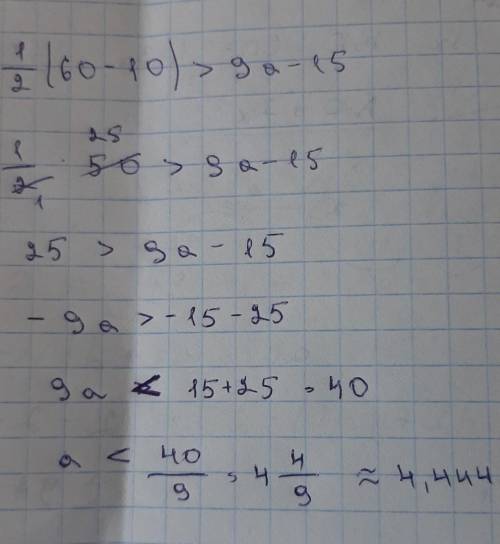 1/2 (60-10) > 9a-15
1/2 · 50 > 9a-15
25
1
25 > 9a - 15
-9a > -15-25
9a < 15+25 = 40
a < 40/9 = 4 4/9 ≈ 4,444